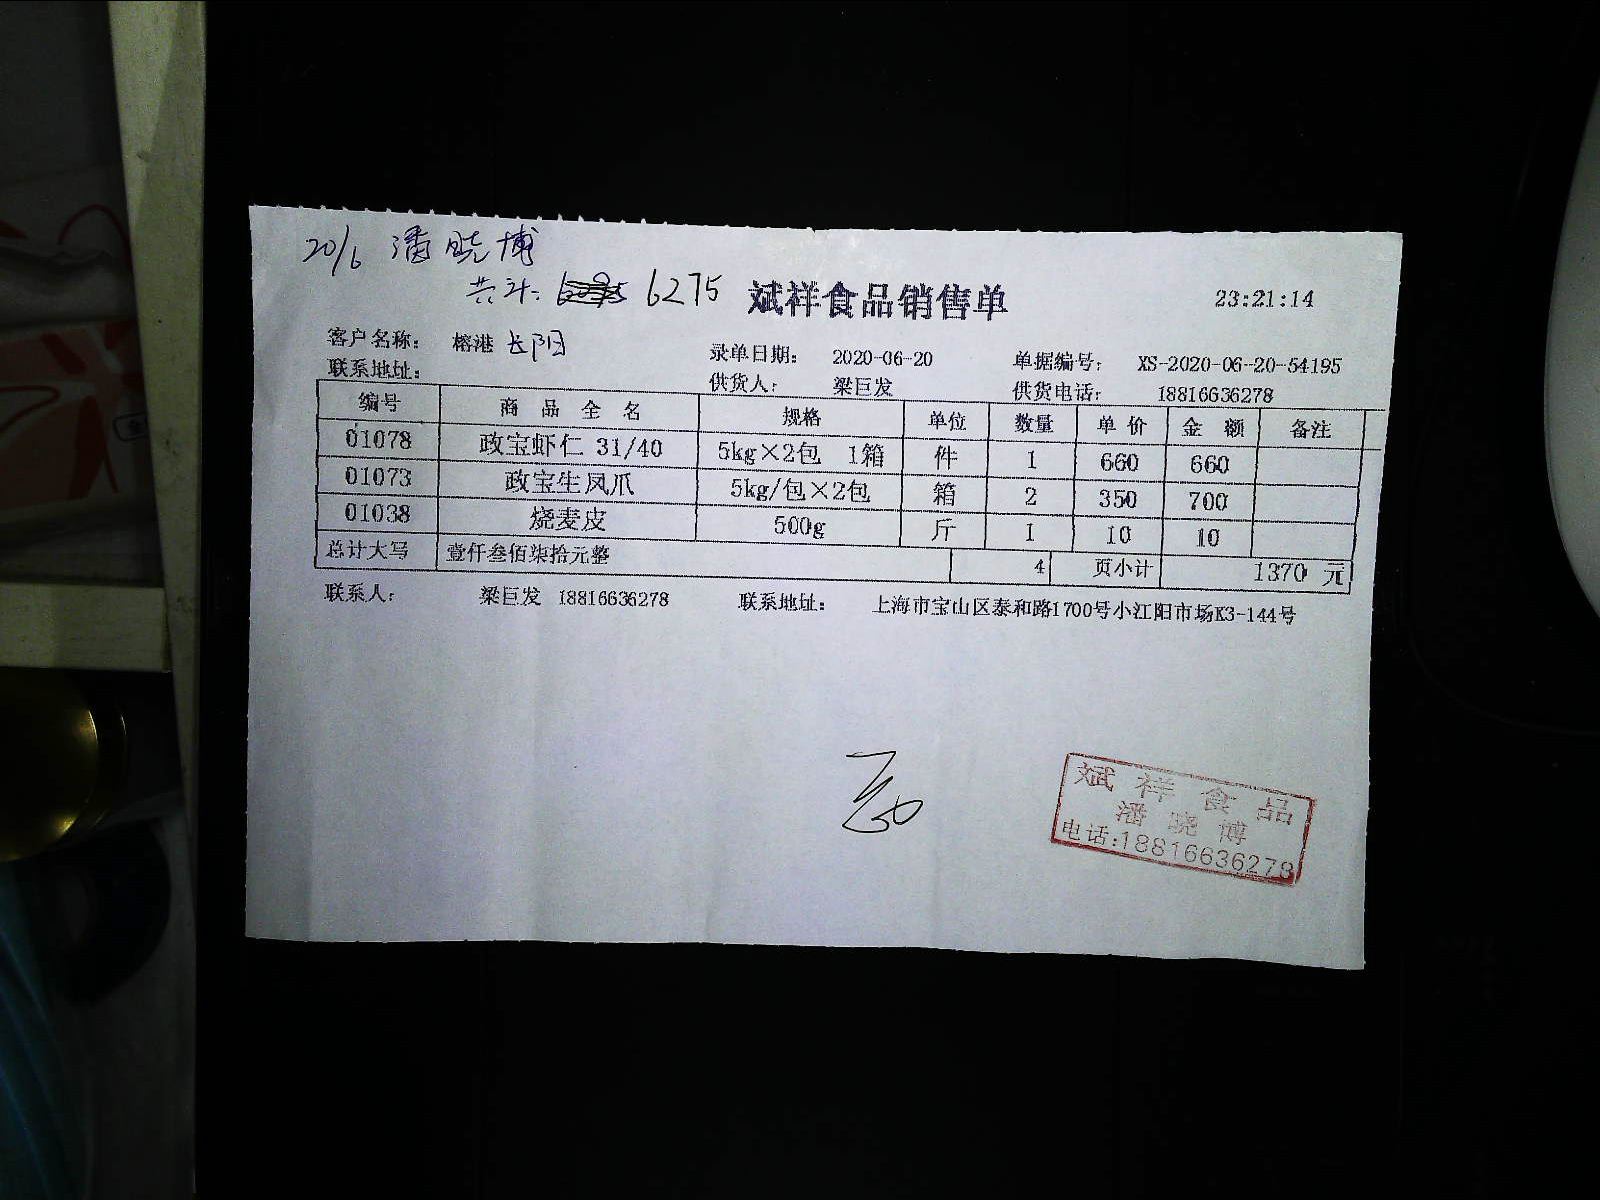 20/6 潘晓博
共计: 6275
斌祥食品销售单
23:21:14
客户名称: 榕港 长阳 录单日期: 2020-06-20 单据编号: XS-2020-06-20-54195
联系地址: 供货人: 梁巨发 供货电话: 18816636278
编号 商品全名 规格 单位 数量 单价 金额 备注
01078 政宝虾仁 31/40 5kg×2包 1箱 件 1 660 660
01073 政宝生凤爪 5kg/包×2包 箱 2 350 700
01038 烧麦皮 500g 斤 1 10 10
总计大写 壹仟叁佰柒拾元整 4 页小计 1370 元
联系人: 梁巨发 18816636278 联系地址: 上海市宝山区泰和路1700号小江阳市场K3-144号
斌祥食品
潘晓博
电话:18816636278